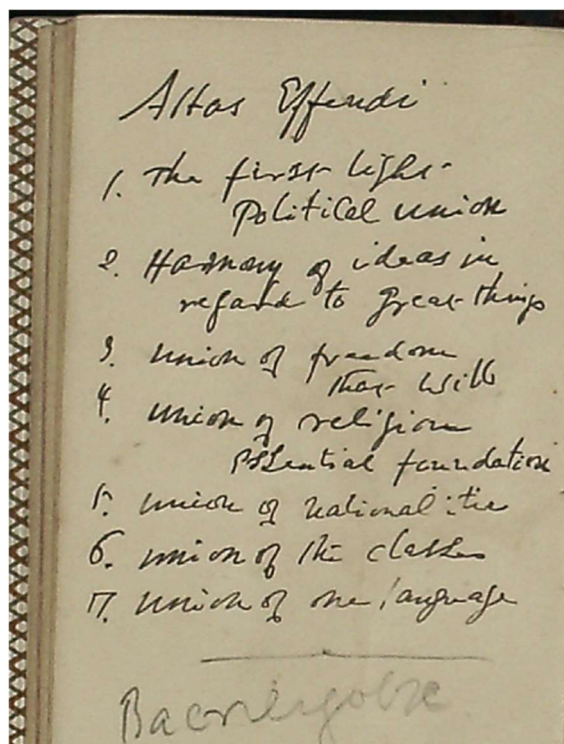 Abbas Effendi
1. The first light
Political union
2. Harmony of ideas in
regard to great things
3. Union of freedom
that will
4. Union of religion
essential foundation
5. Union of nationalities
6. Union of the classes
7. Union of one language